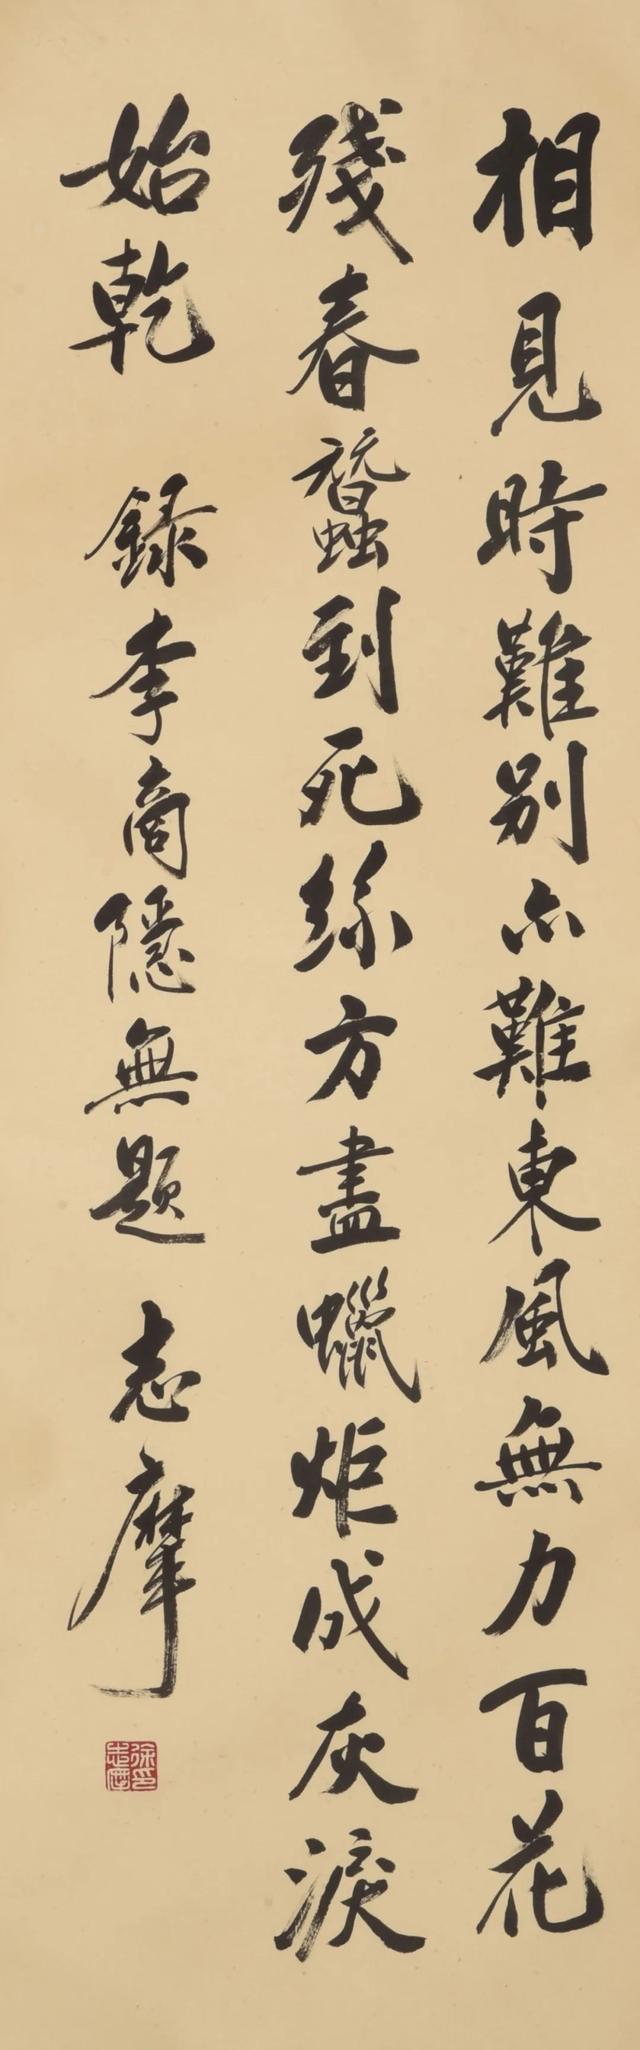 相見時難別亦難東風無力百花
殘春蠶到死絲方盡蠟炬成灰淚
始乾 録李商隱無題 志摩
徐志摩印